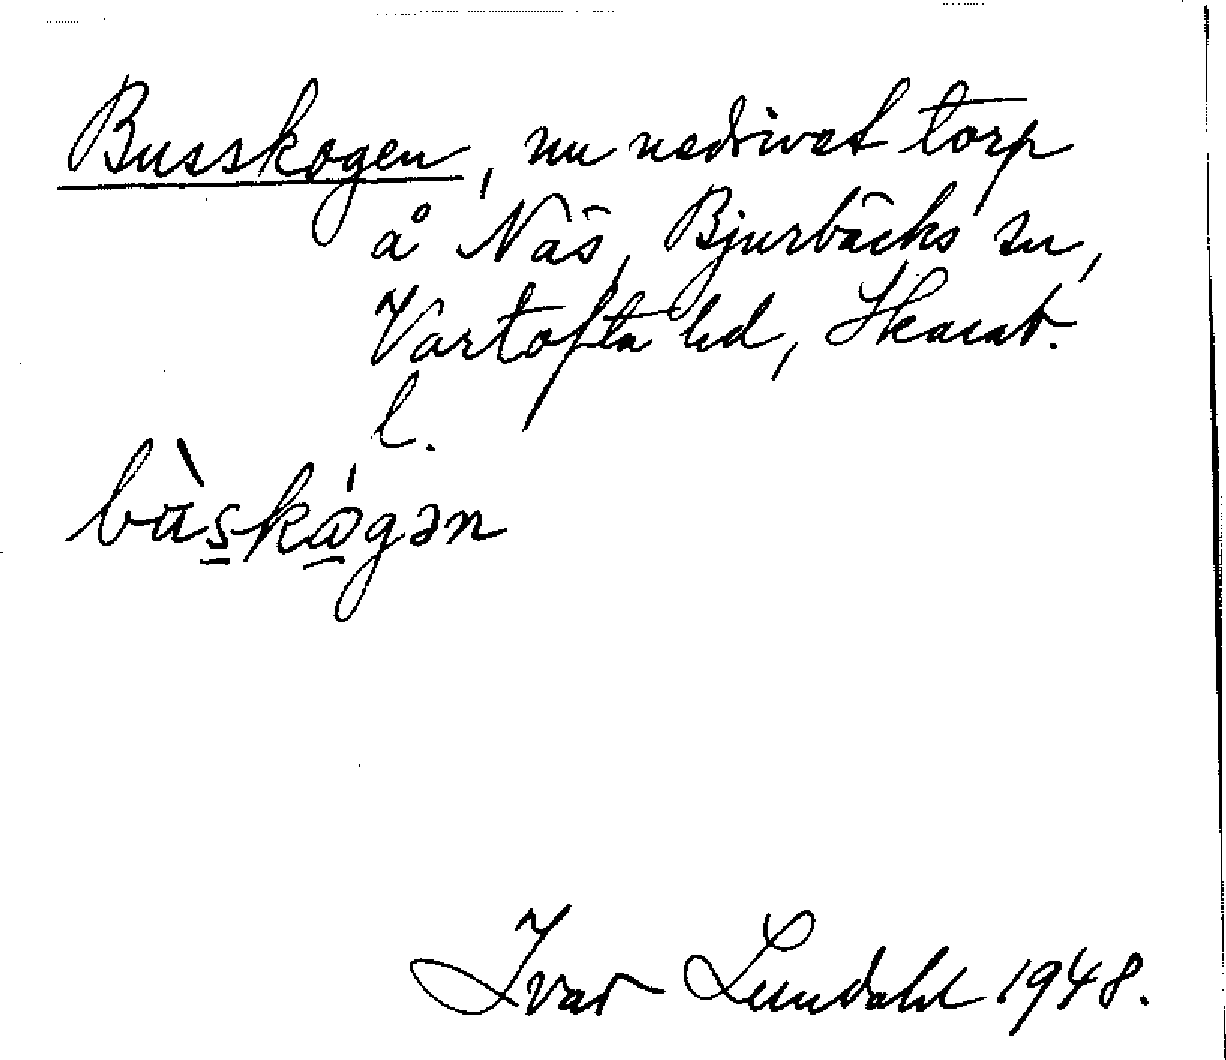 Busskogen, nu nedrivet torp
å Näs, Bjurbäcks sn,
Vartofta hd, Skarab.
l.
bùs̲kò̲gən
Ivar Lundahl 1948.